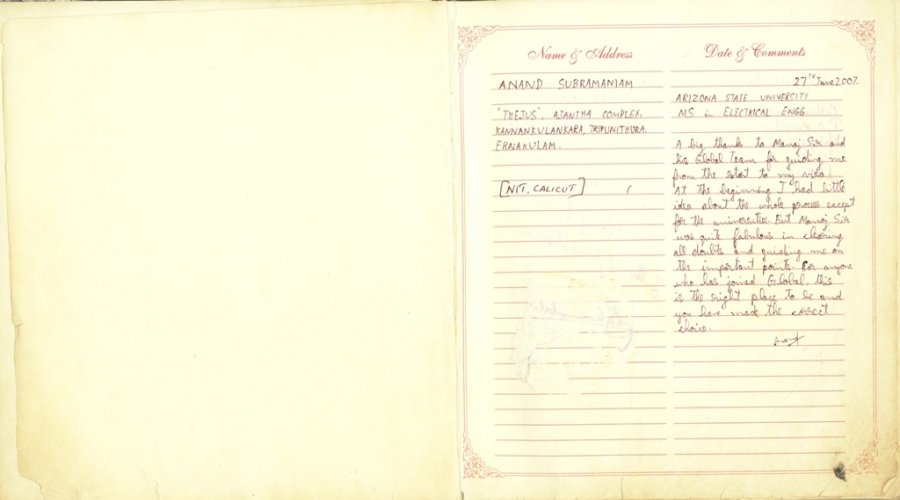 Name & Address
ANAND SUBRAMANIAM
"THEJUS", AJANTHA COMPLEX,
KANNANKULANKARA, TRIPUNITHURA,
ERNAKULAM.
[NIT, CALICUT]
Date & Comments
27TH June 2007.
ARIZONA STATE UNIVERSITY
MS in ELECTRICAL ENGG
A big thank to Manoj Sir and
his Global Team for guiding me
from the start to my visa.
At the beginning I had little
idea about the whole process except
for the universities. But Manoj Sir
was quite fabulous in clearing
all doubts and guiding me on
the important points. For anyone
who has joined Global, this
is the right place to be and
you have made the correct
choice.